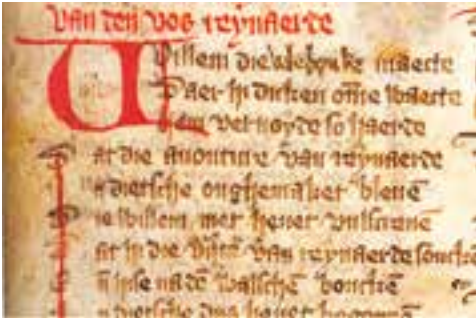 Van den vos reynaerde
Willem die vele bouke maecte
Daer hi dicken omme waecte
Hem vernoyde so haerde
Dat die avonture van reynaerde
In dietsche onghemaket blevē
Die willem niet hevet vulscrevē
Dat hi die vijte van reynaerde soucke
En hise na dē walschē bouckē
In dietsche dus hevet begonnē